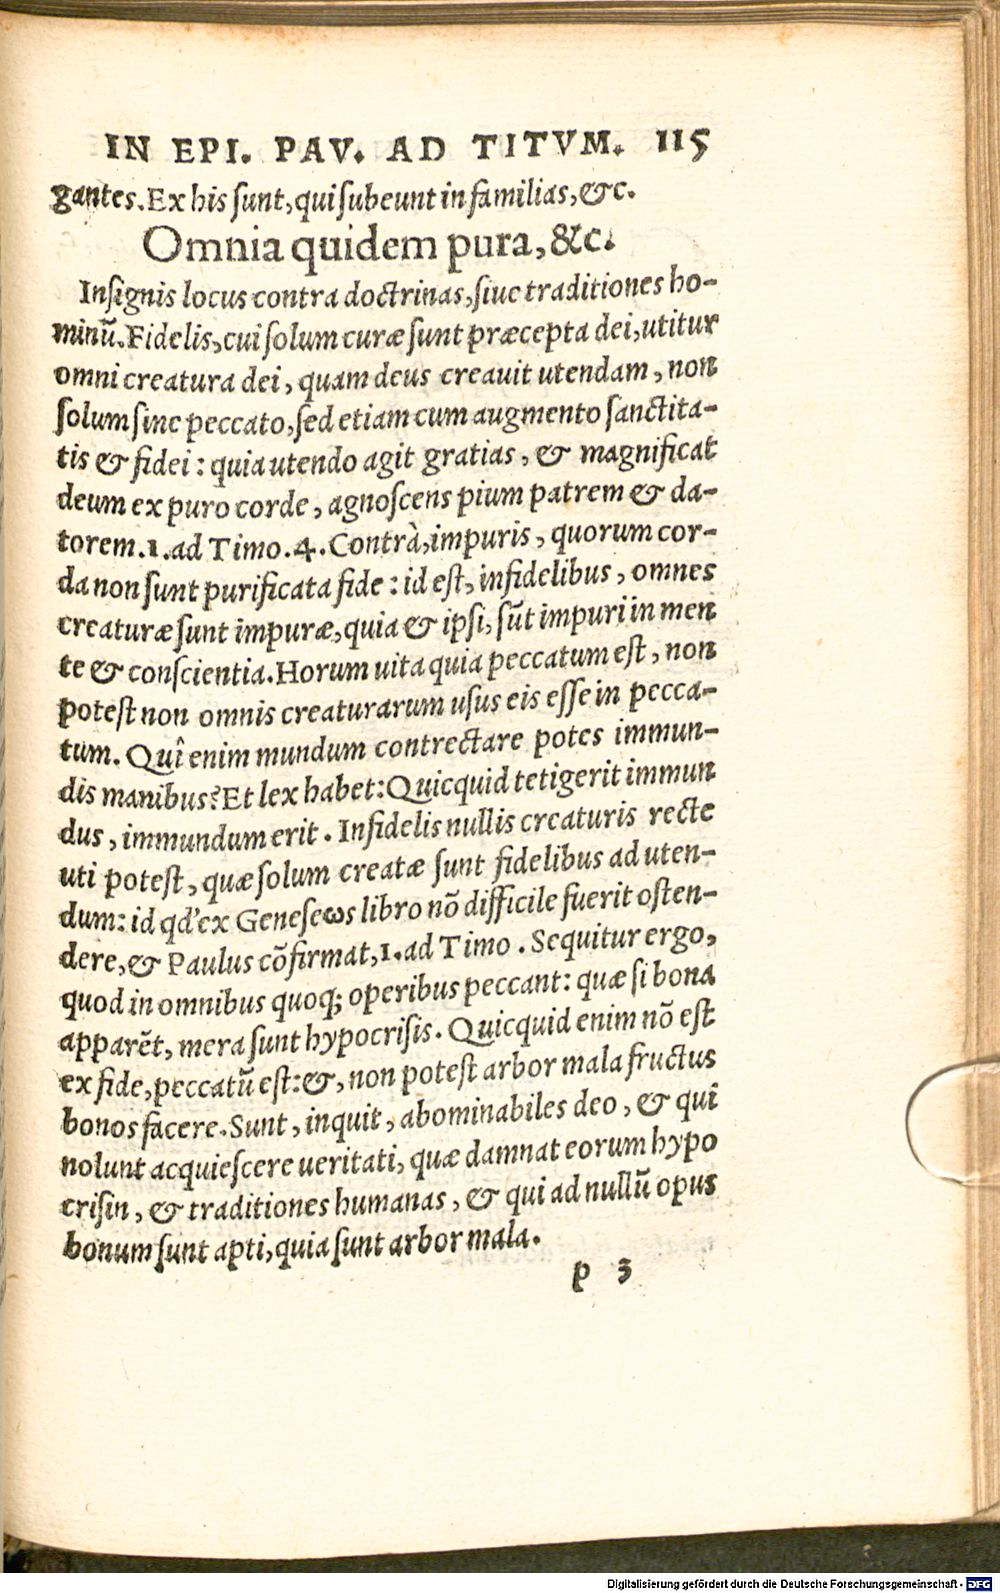 IN EPI. PAV. AD TITVM. 115
gantes. Ex his sunt, qui subeunt in familias, &c.
Omnia quidem pura, &c.
Insignis locus contra doctrinas, siue traditiones ho-
minū. Fidelis, cui solum curæ sunt præcepta dei, utitur
omni creatura dei, quam deus creauit utendam, non
solum sine peccato, sed etiam cum augmento sanctita-
tis & fidei: quia utendo agit gratias, & magnificat
deum ex puro corde, agnoscens pium patrem & da-
torem. 1. ad Timo. 4. Contrà, impuris, quorum cor-
da non sunt purificata fide: id est, infidelibus, omnes
creaturæ sunt impuræ, quia & ipsi, sūt impuri in men
te & conscientia. Horum uita quia peccatum est, non
potest non omnis creaturarum usus eis esse in pecca-
tum. Quî enim mundum contrectare potes immun-
dis manibus? Et lex habet: Quicquid tetigerit immun
dus, immundum erit. Infidelis nullis creaturis recte
uti potest, quæ solum creatæ sunt fidelibus ad uten-
dum: id qd' ex Geneseωs libro nō difficile fuerit osten-
dere, & Paulus cōfirmat, 1. ad Timo. Sequitur ergo,
quod in omnibus quoq; operibus peccant: quæ si bona
apparēt, mera sunt hypocrisis. Quicquid enim nō est
ex fide, peccatū est: &, non potest arbor mala fructus
bonos facere. Sunt, inquit, abominabiles deo, & qui
nolunt acquiescere ueritati, quæ damnat eorum hypo
crisin, & traditiones humanas, & qui ad nullū opus
bonum sunt apti, quia sunt arbor mala.
p 3
Digitalisierung gefördert durch die Deutsche Forschungsgemeinschaft - DFG